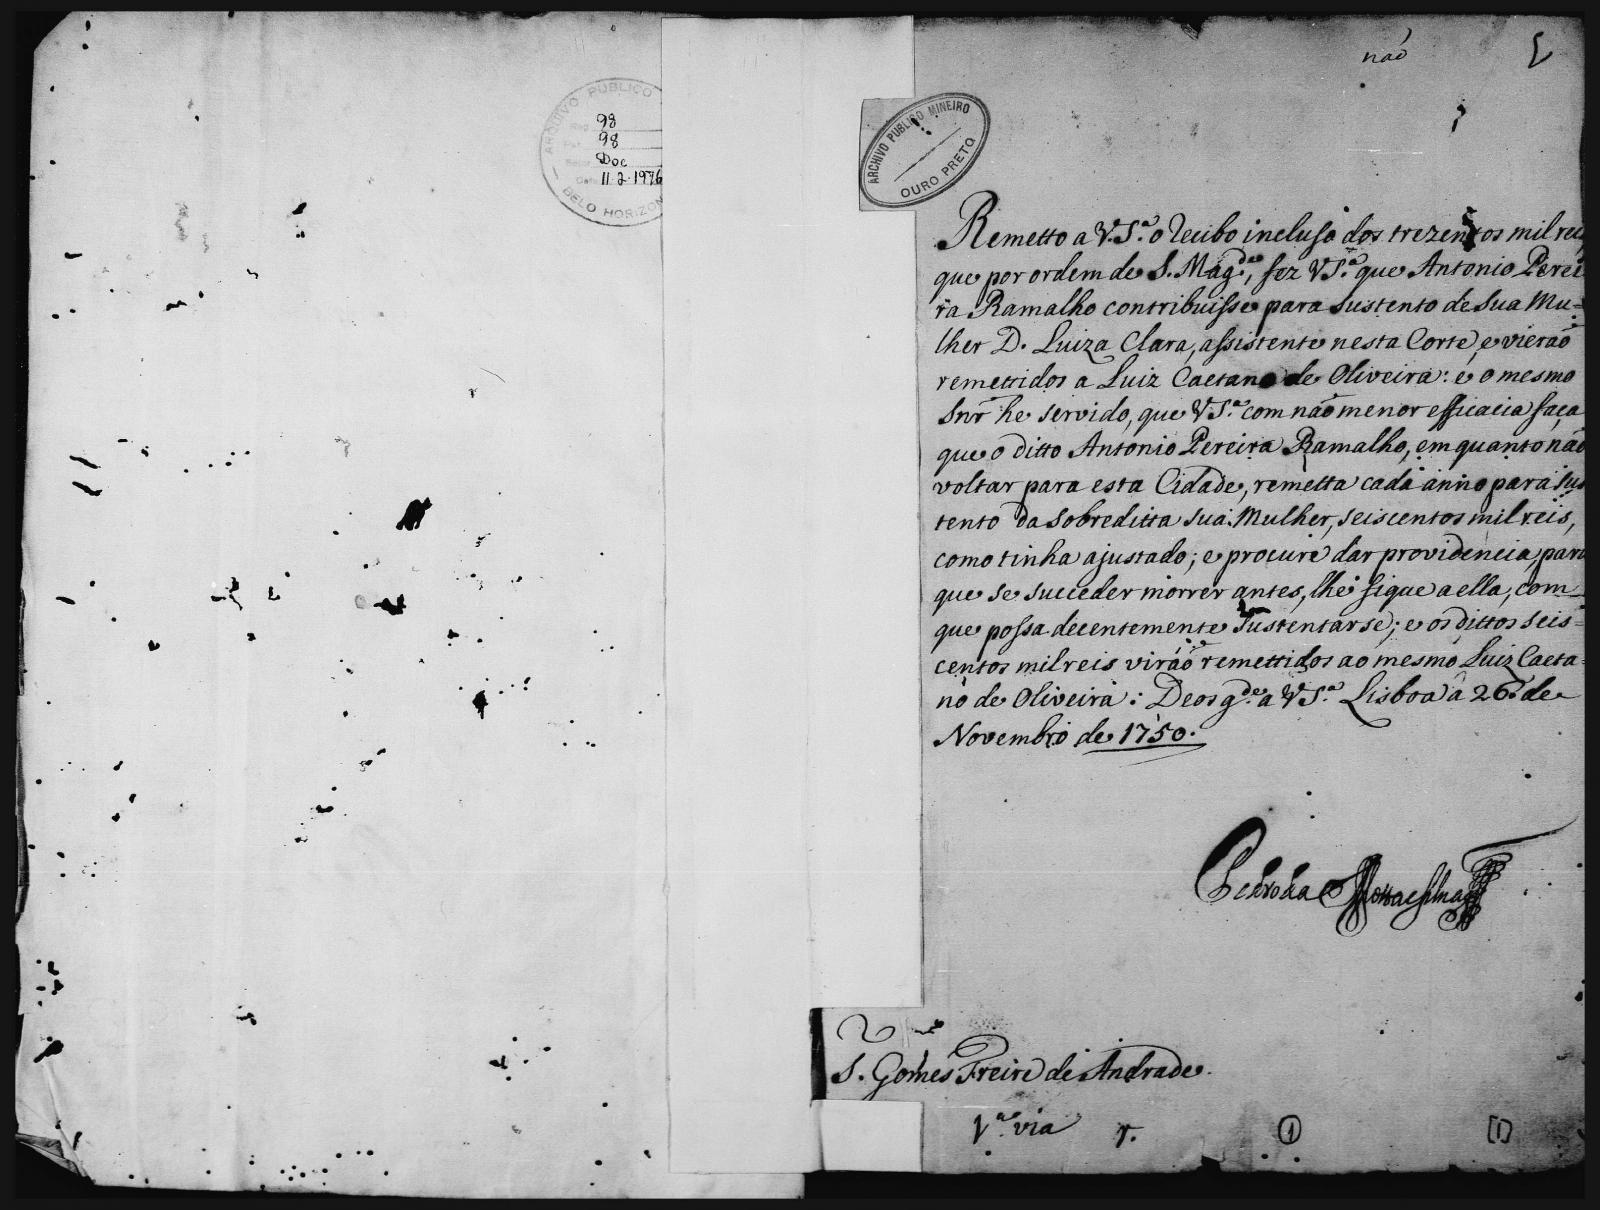 ARCHIVO PUBLICO
98
98
Doc
11-2-1976
BELO HORIZON
não
ARCHIVO PUBLICO MINEIRO
OURO PRETO
Remetto a V.S.ª o recibo incluso dos trezentos mil reis
que por ordem de S. Mag.de, fez V S.ª que Antonio Perei
ra Ramalho contribuisse para sustento de sua Mu=
lher D. Luiza Clara, assistente nesta Corte, e vierão
remettidos a Luiz Caetano de Oliveira: e o mesmo
Snr̃ he servido, que V S.ª com não menor efficacia faça
que o ditto Antonio Pereira Ramalho, em quanto não
voltar para esta Cidade, remetta cada anno para sus
tento da sobreditta sua Mulher, seiscentos mil reis,
como tinha ajustado; e procure dar providencia, para
que se succeder morrer antes, lhe fique a ella, com
que possa decentemente sustentarse; e os dittos seis=
centos mil reis virão remettidos ao mesmo Luiz Caeta=
no de Oliveira: Deos g.de a V S.ª Lisboa a 26 de
Novembro de 1750.
Pedro da Motta e Silva
S. Gomes Freire de Andrade.
1.ª via r. 1 [1]